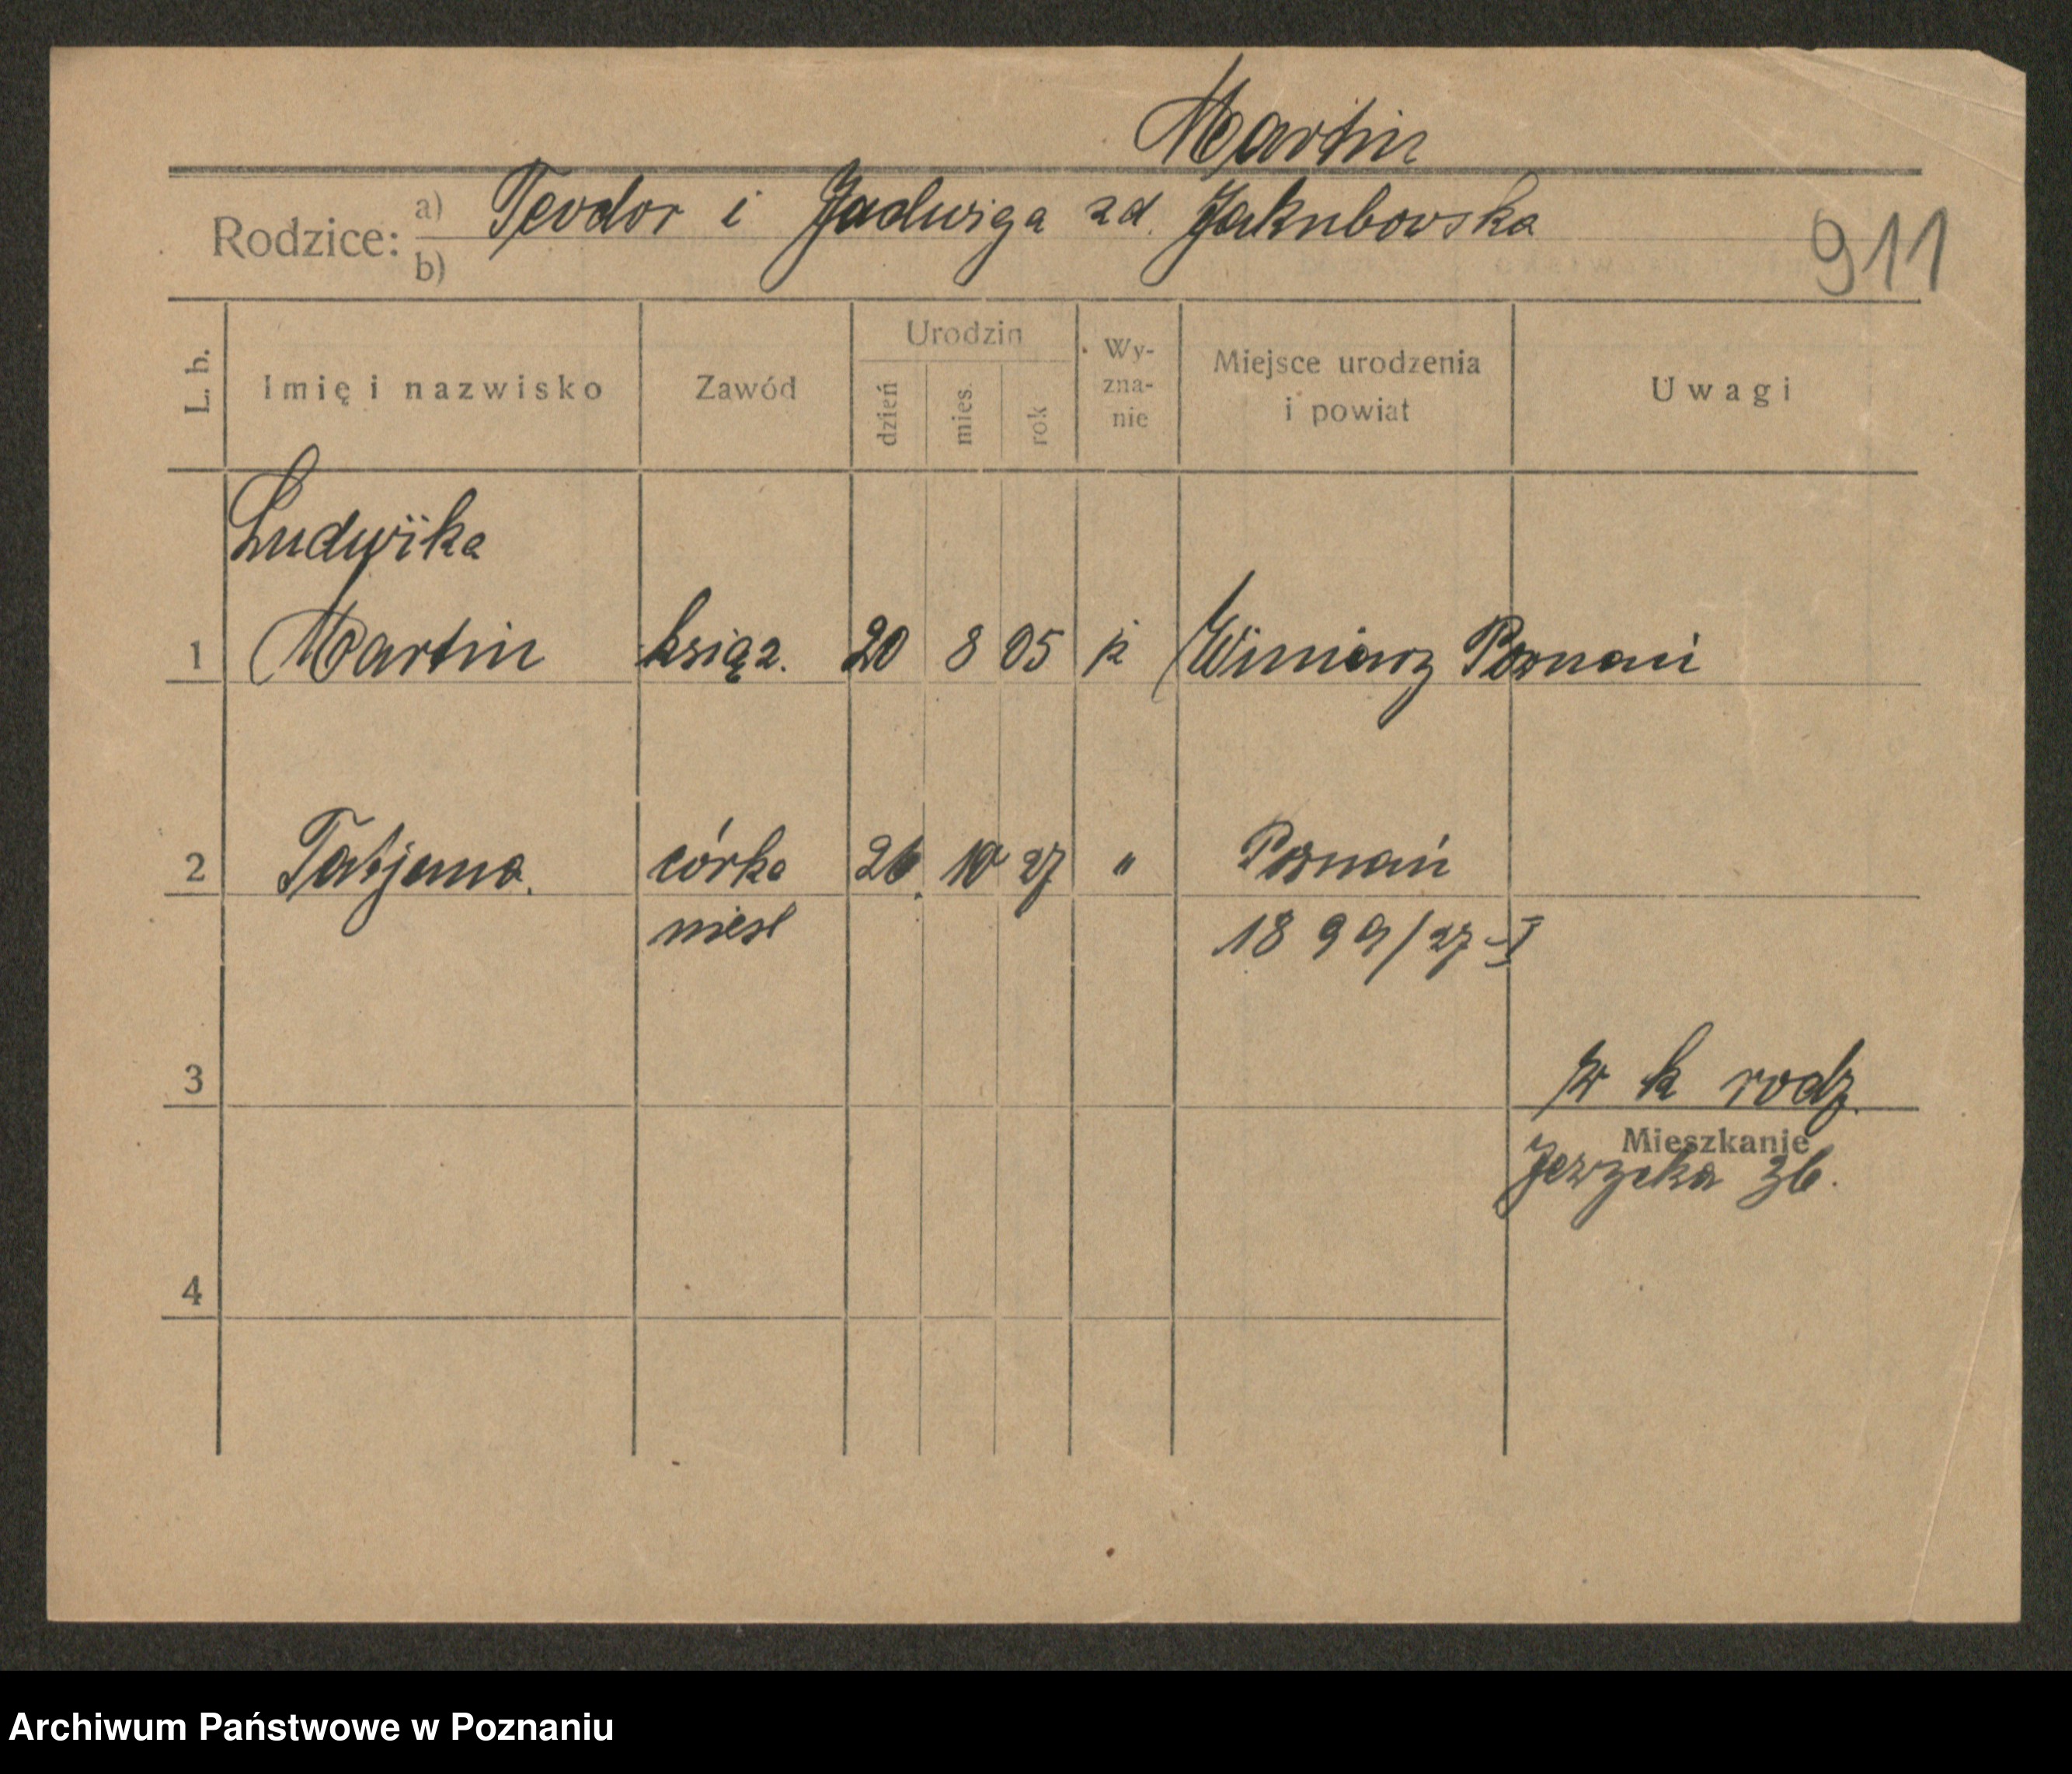 Martin
Rodzice: a) Teodor i Jadwiga zd. Jakubowska
b)
911
L. b. Imię i nazwisko Zawód Urodzin dzień mies. rok Wy-zna-nie Miejsce urodzenia i powiat Uwagi
Ludwika
1 Martin książ. 20 8 05 k Winiary Poznań
2 Tatjana. córka 26. 10 27 " Poznań
nieśl 1899/27 I
3 k rodz.
Mieszkanie
36.
4
Archiwum Państwowe w Poznaniu